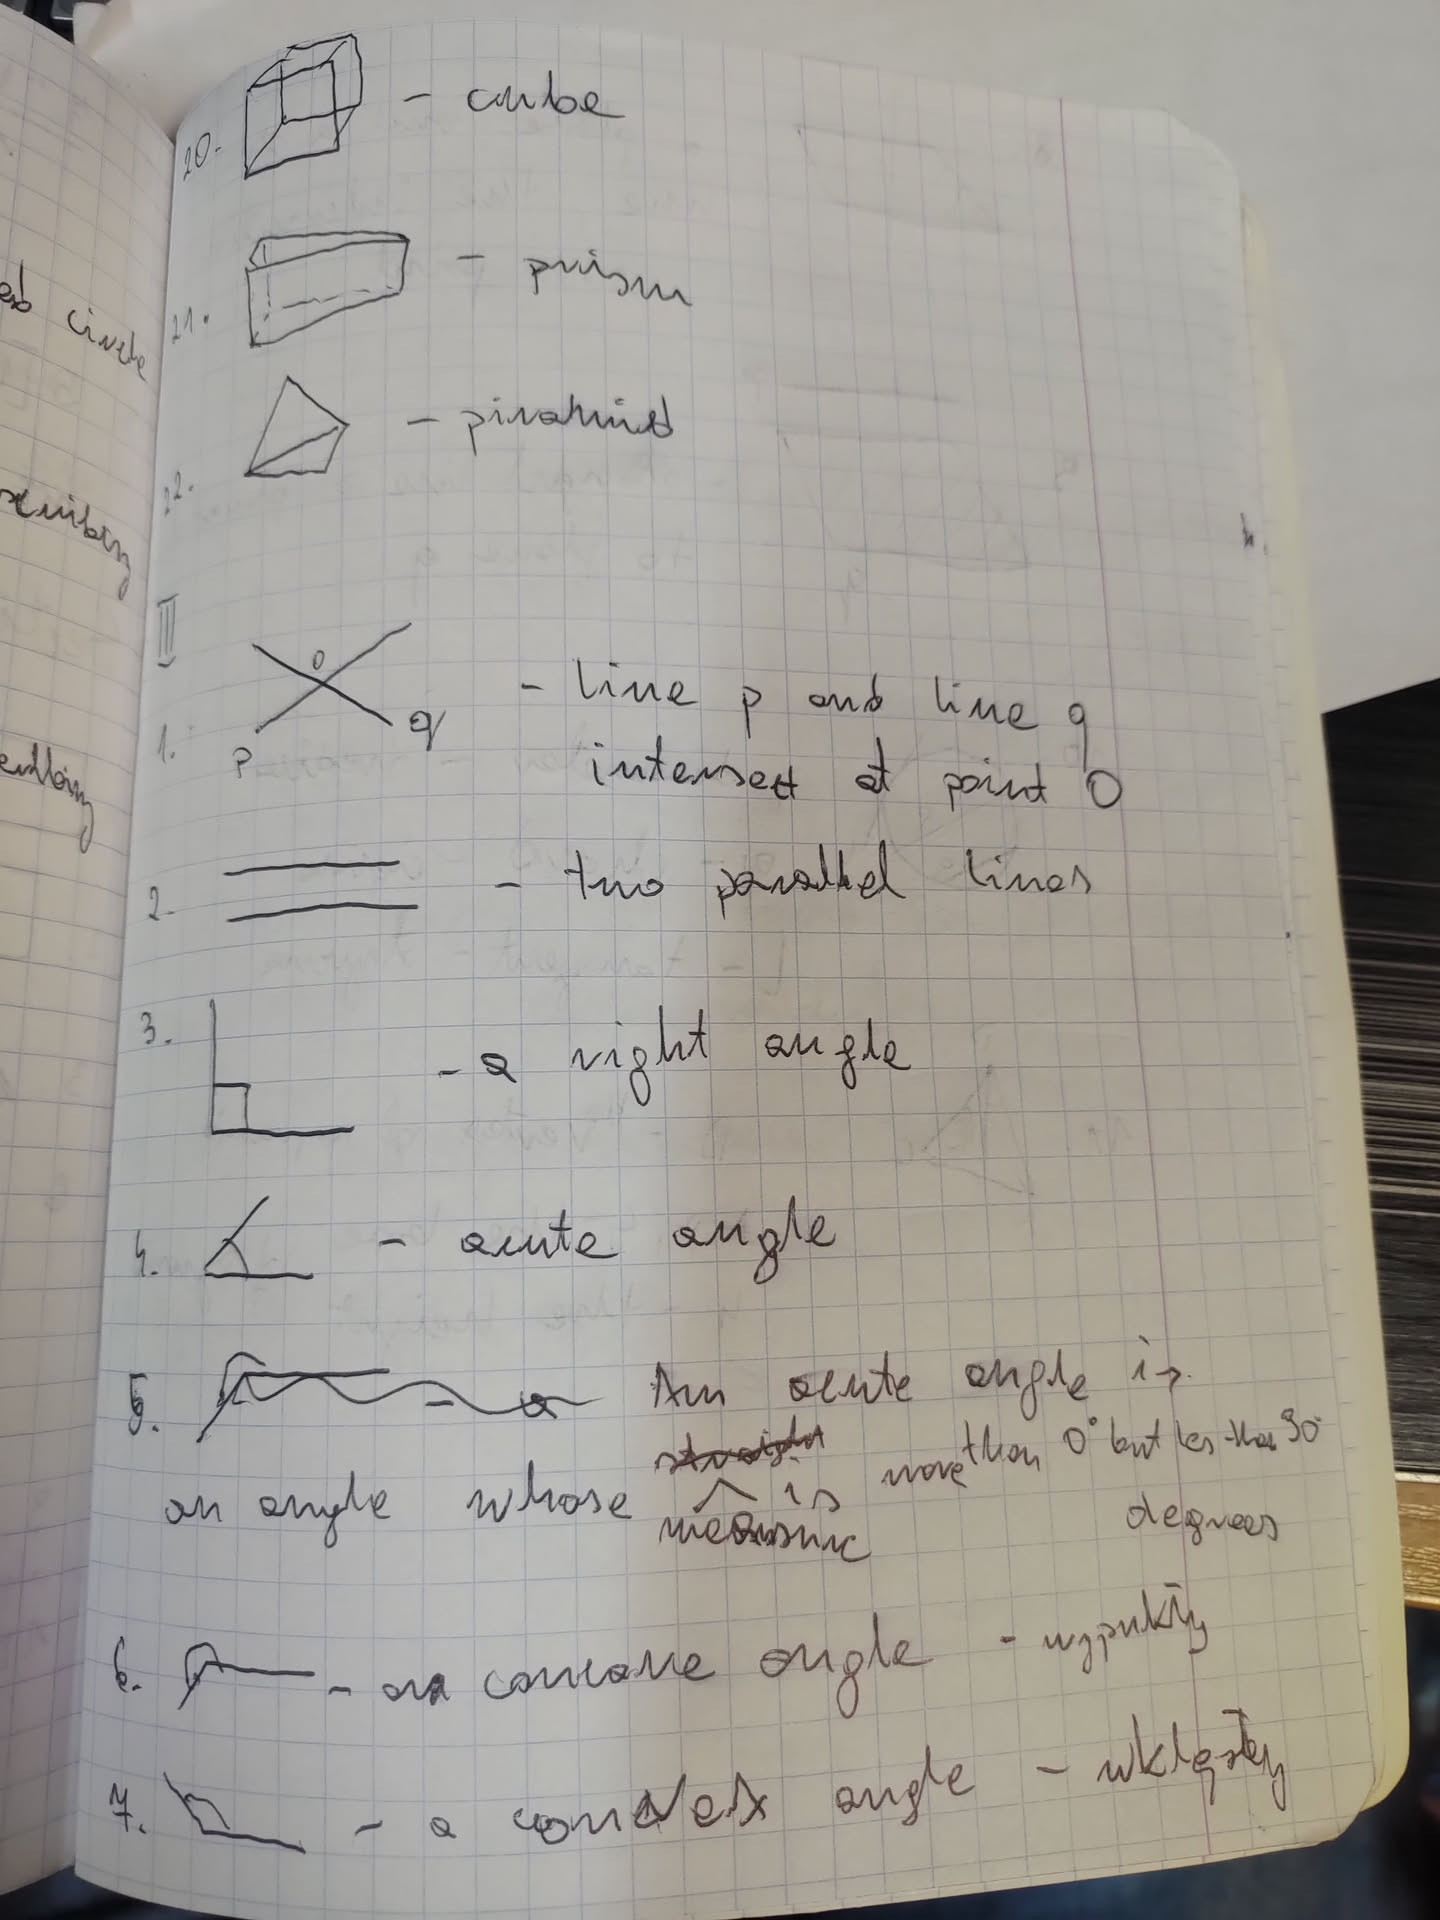 ed circle
20. - cube
21. - prism
22. - piramid
III
O
p q
1. - line p and line q
intersect at point O
2. - two parallel lines
3. - a right angle
4. - acute angle
5. - a An acute angle is
straight more than 0° but les than 90°
an angle whose measure is degrees
6. - an concave angle - wypukły
7. - a convex angle - wklęsły